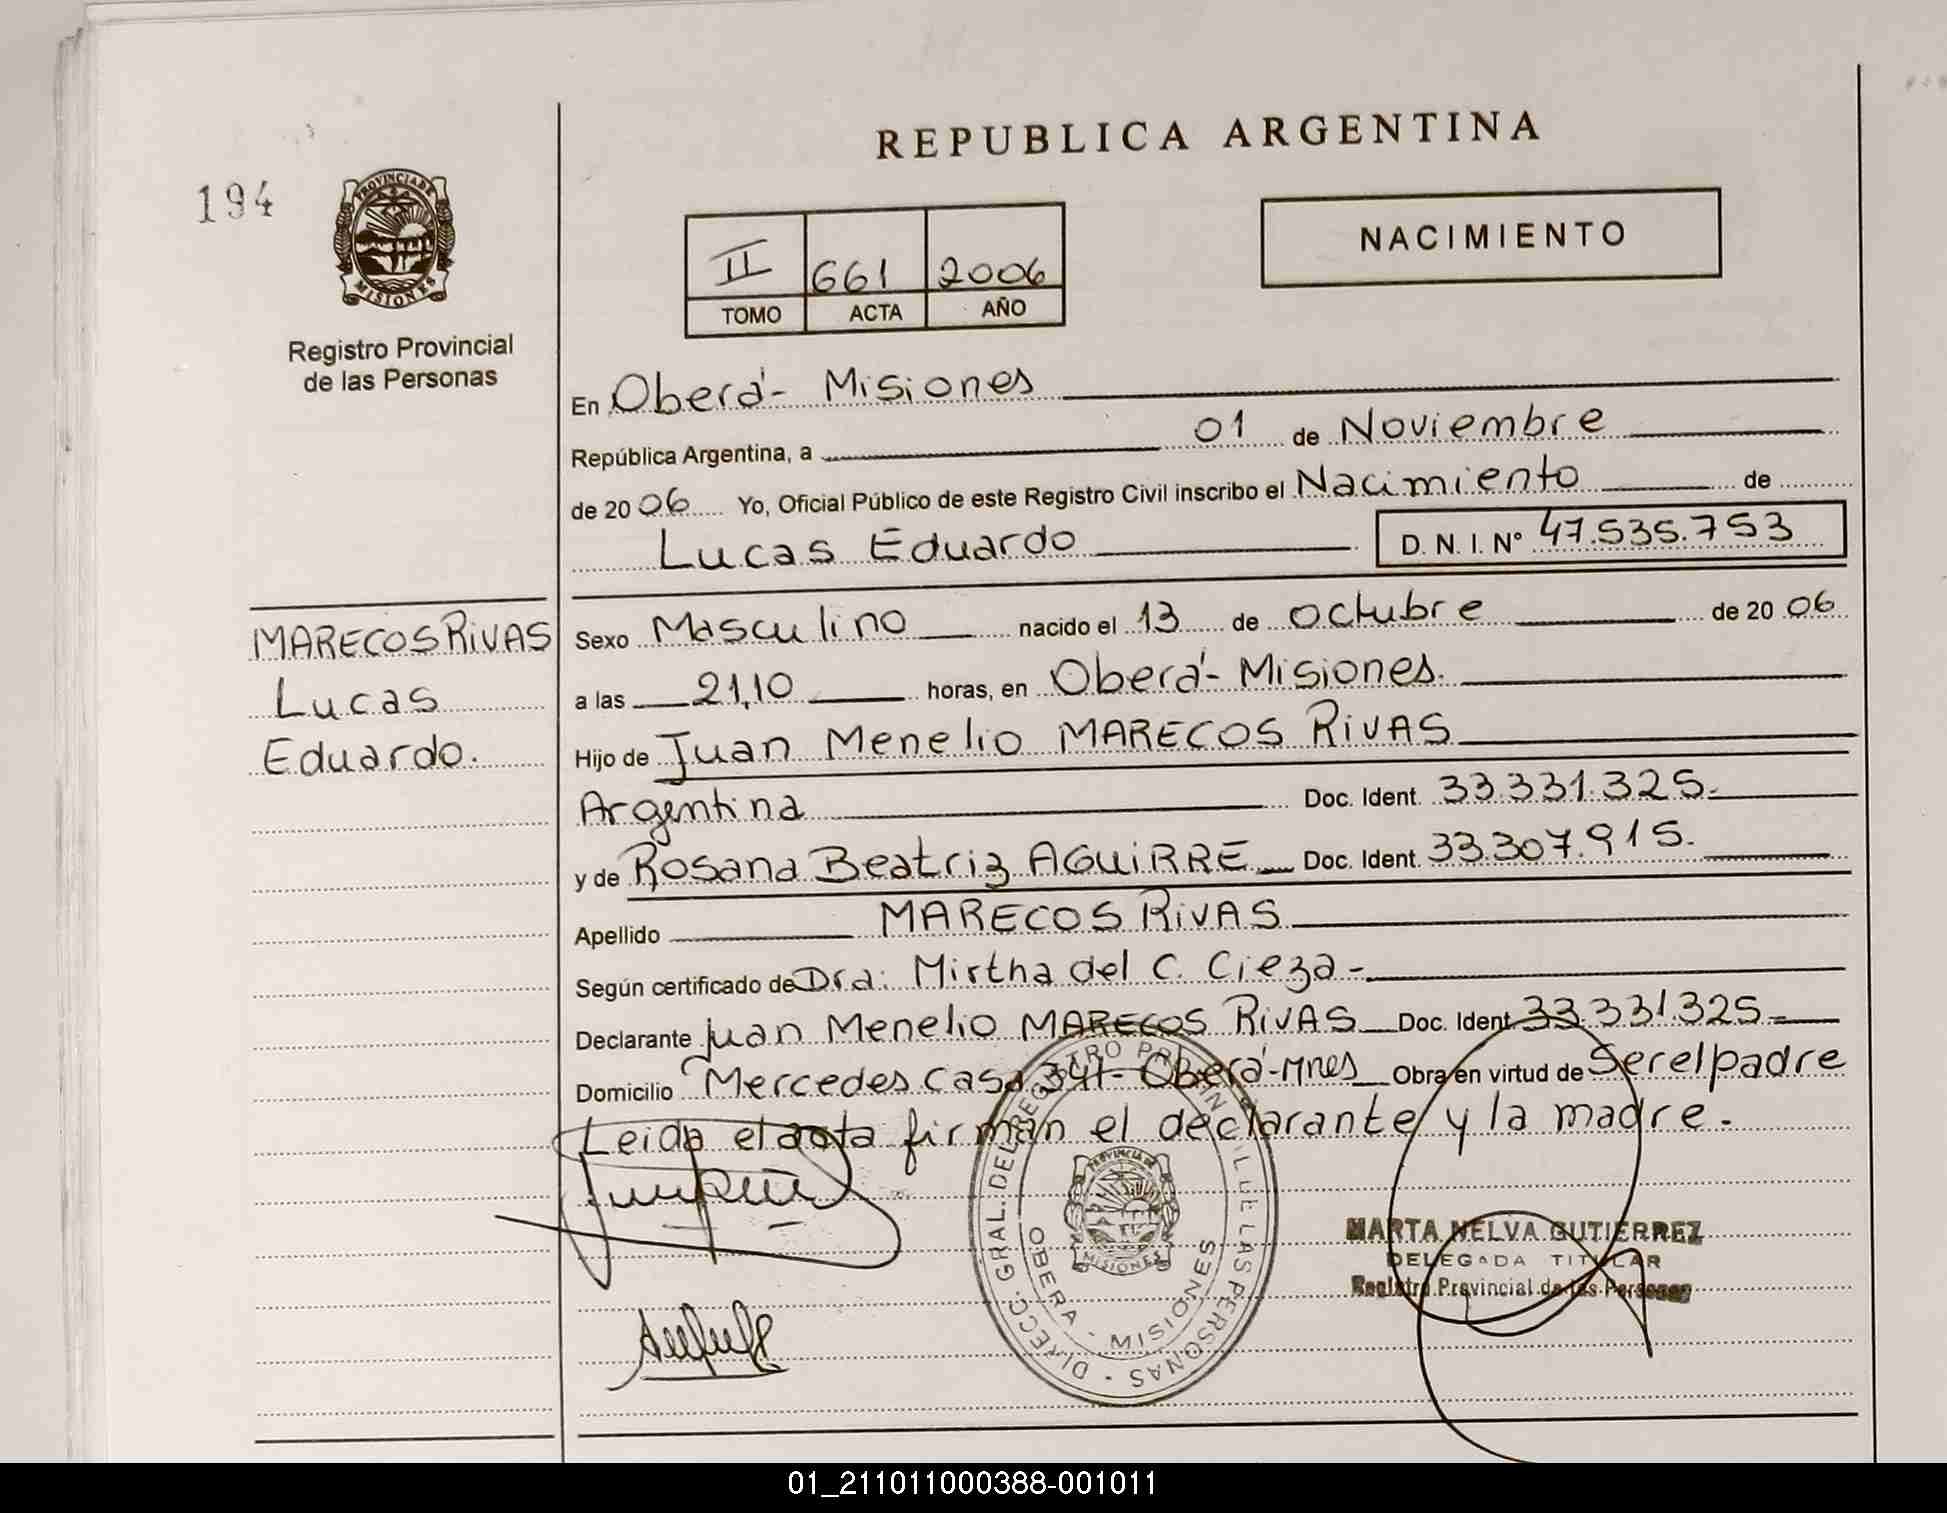 REPUBLICA ARGENTINA
194
PROVINCIA DE
MISIONES
Registro Provincial
de las Personas
II 661 2006
TOMO ACTA AÑO
NACIMIENTO
En Oberá - Misiones
República Argentina, a 01 de Noviembre
de 2006 Yo, Oficial Público de este Registro Civil inscribo el Nacimiento de
Lucas Eduardo D. N. I. Nº 47.535.753
MARECOS RIVAS
Lucas
Eduardo.
Sexo Masculino nacido el 13 de octubre de 2006
a las 21,10 horas, en Oberá - Misiones.
Hijo de Juan Menelio MARECOS RIVAS
Argentina Doc. Ident. 33.331.325.-
y de Rosana Beatriz AGUIRRE Doc. Ident. 33.307.915.
Apellido MARECOS RIVAS
Según certificado de Dra: Mirtha del C. Cieza -
Declarante Juan Menelio MARECOS RIVAS Doc. Ident. 33.331.325.-
Domicilio Mercedes Casa 341 - Oberá - Mnes Obra en virtud de Ser el padre
Leida el acta firman el declarante y la madre.
DIRECC. GRAL. DEL REGISTRO PROVINCIAL DE LAS PERSONAS
PROVINCIA DE
MISIONES
OBERA - MISIONES
MARTA NELVA GUTIERREZ
DELEGADA TITULAR
Registro Provincial de las Personas
01_211011000388-001011